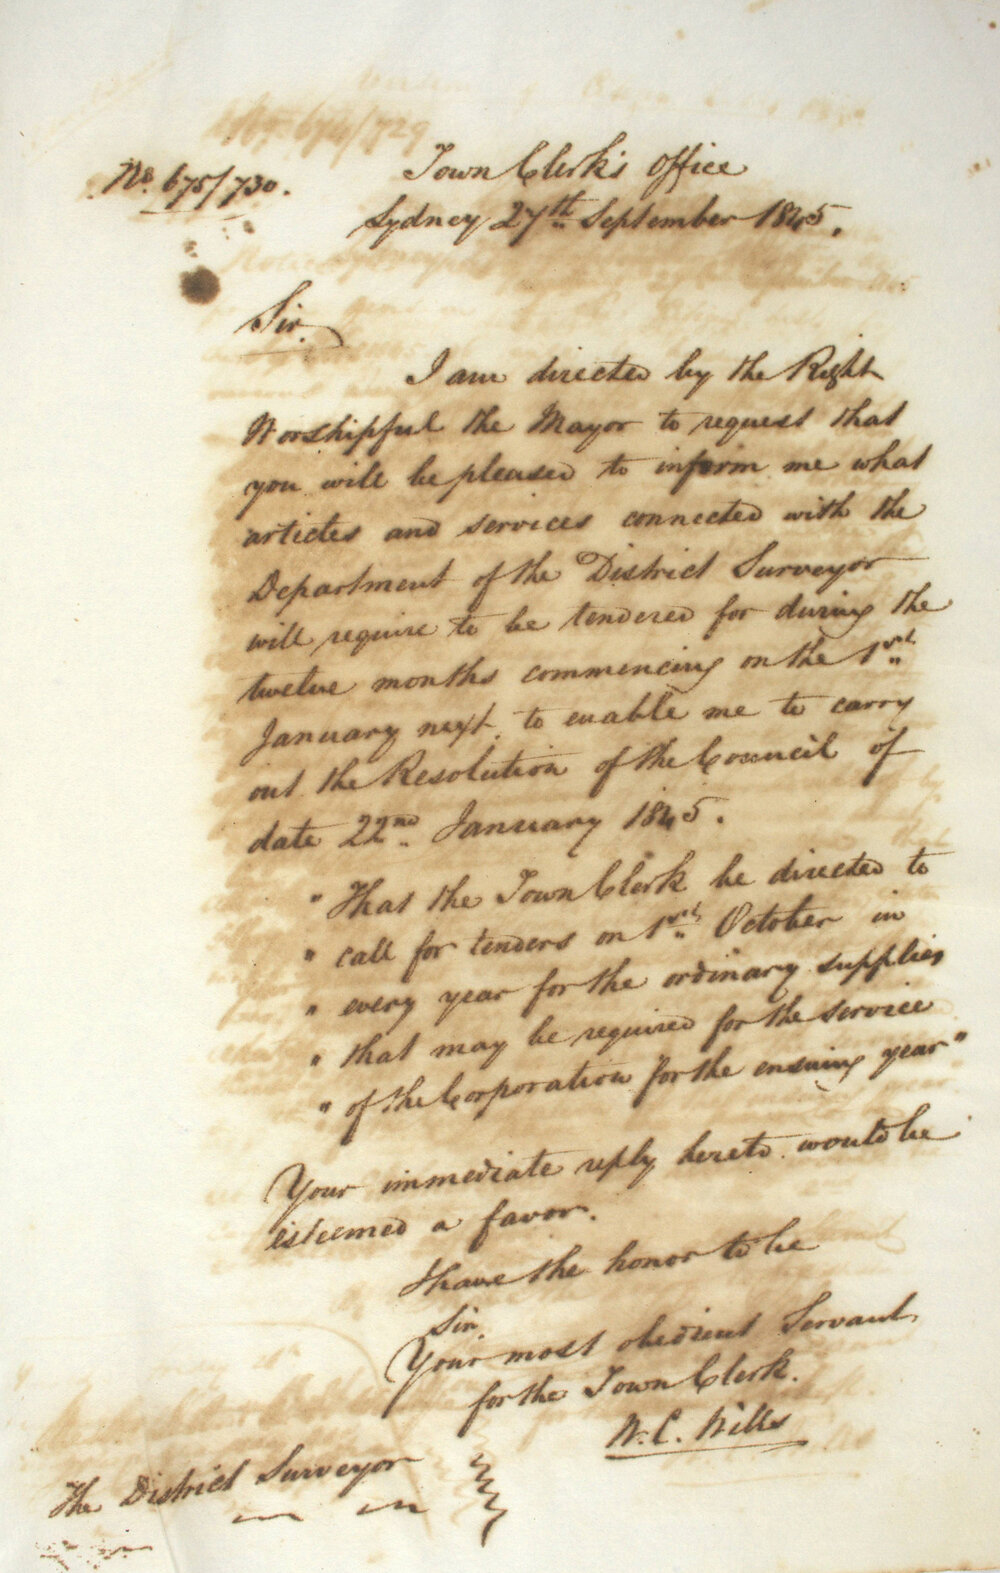 No. 675/730.
Town Clerk's Office
Sydney 27th September 1845.
Sir,
I am directed by the Right
Worshipful the Mayor to request that
you will be pleased to inform me what
articles and services connected with the
Department of the District Surveyor
will require to be tendered for during the
twelve months commencing on the 1rst
January next, to enable me to carry
out the Resolution of the Council of
date 22nd January 1845.
" That the Town Clerk be directed to
" call for tenders on 1rst October in
" every year for the ordinary supplies
" that may be required for the service
" of the Corporation for the ensuing year"
Your immediate reply hereto would be
esteemed a favor.
I have the honor to be
Sir,
Your most obedient Servant,
for the Town Clerk.
W. C. Wills
The District Surveyor